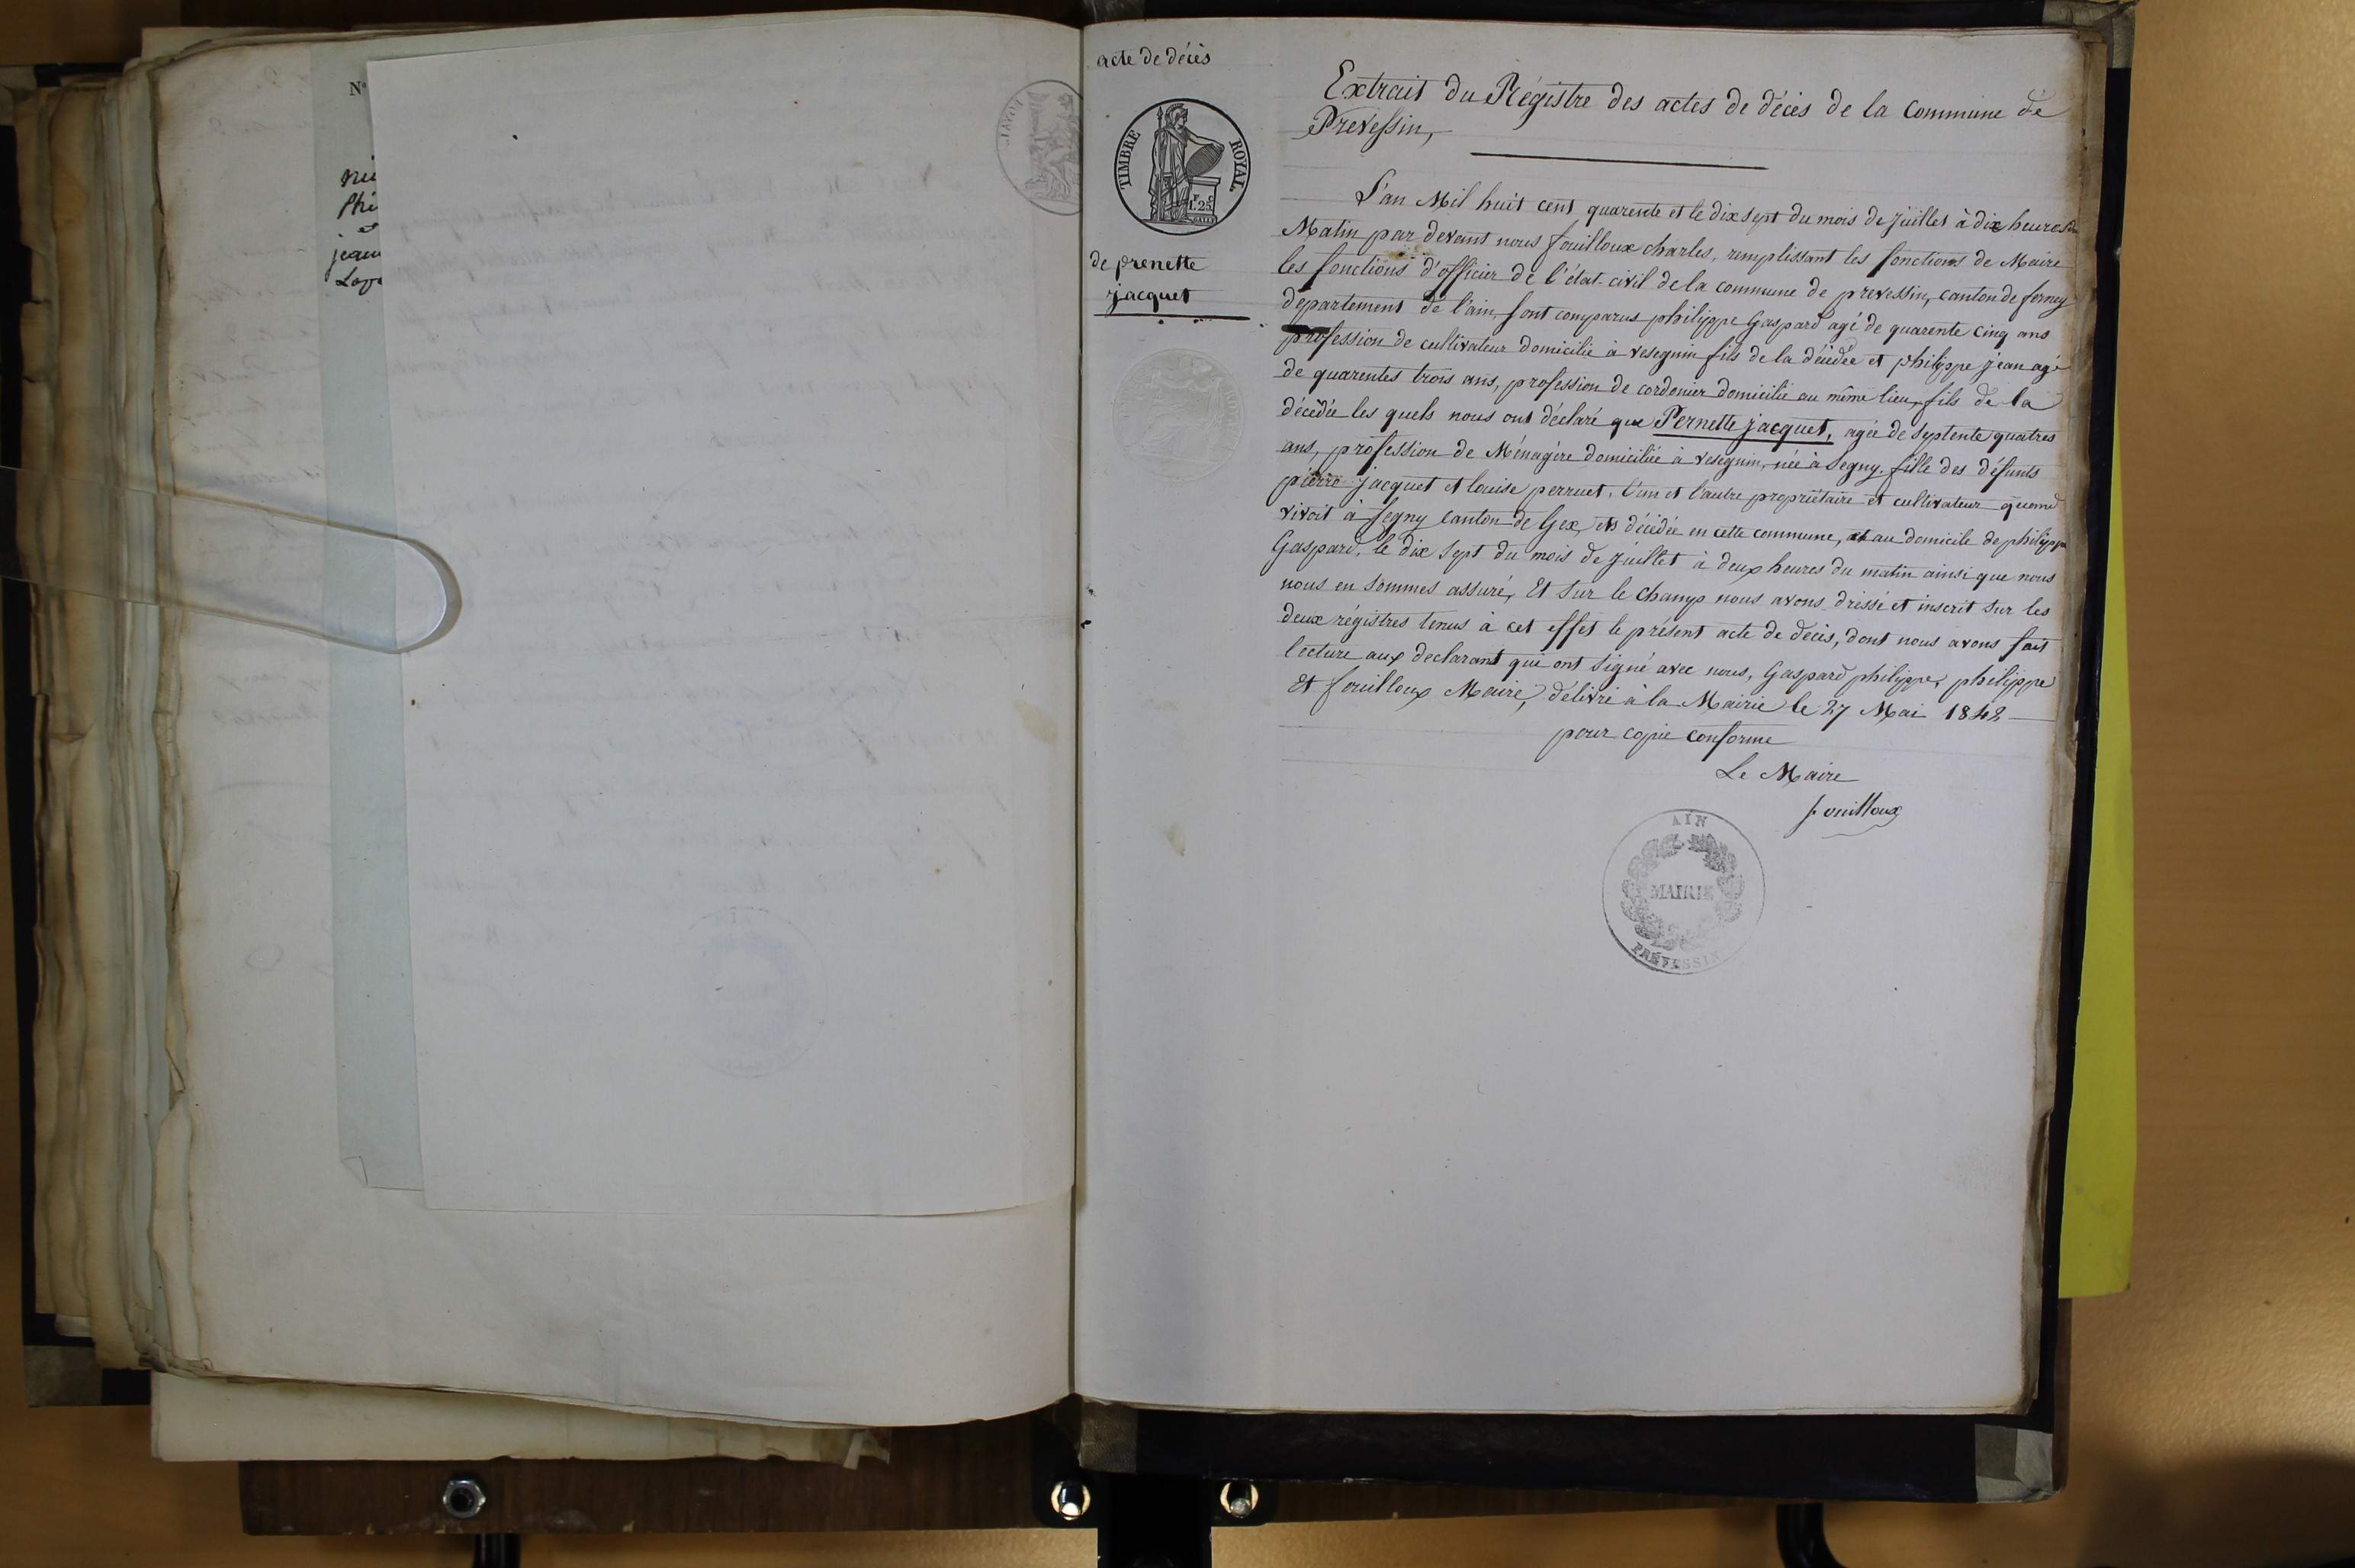 N°
jean
acte de décès
TIMBRE ROYAL
1F.25C
de prenette
jacquet
Extrait du Régistre des actes de décès de la Commune de
Prevessin,
L'an Mil huit cent quarente et le dix sept du mois de juillet à dix heures du
Matin par devant nous fouilloux charles, remplissant les fonctions de Maire
les fonctions d'officier de l'état-civil de la commune de prevessin, canton de ferney
département de l'ain, sont comparus philippe Gaspard agé de quarente cinq ans
profession de cultivateur domicilié à vesegnin fils de la décédée et philippe jean agé
de quarentes trois ans, profession de cordonier domicilié au même lieu, fils de la
décédée les quels nous ont déclaré que Pernette jacquet, agée de septente quatres
ans, profession de Ménagère domiciliée à vesegnin, née à Segny. fille des défunts
pierre jacquet et louise perruet, l'un et l'autre propriétaire et cultivateur quand
vivoit à Segny canton de Gex, est décédée en cette commune, et au domicile de philippe
Gaspard, le dix sept du mois de juillet à deux heures du matin ainsi que nous
nous en sommes assuré, Et sur le champ nous avons drissé et inscrit sur les
deux régistres tenus à cet effet le présent acte de décès, dont nous avons fait
lecture aux declarant qui ont signé avec nous, Gaspard philippe, philippe
Et fouilloux Maire, délivré à la Mairie le 27 Mai 1842
pour copie conforme
Le Maire
fouilloux
AIN
MAIRIE
PRÉVESSIN